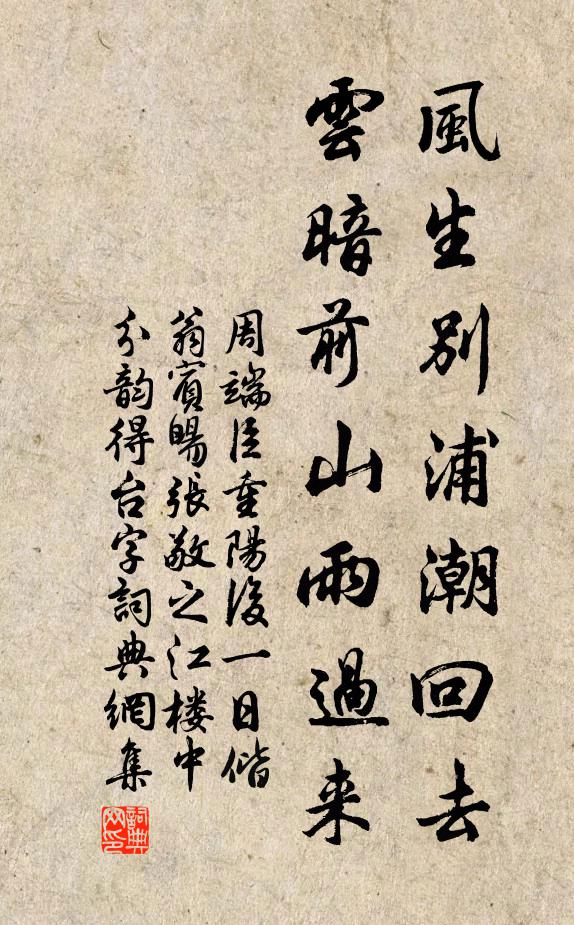 風生別浦潮回去
雲暗前山雨過来
周端臣重陽後一日偕
翁賓暘張敬之江楼中
分韵得台字詞典網集
詞典网印